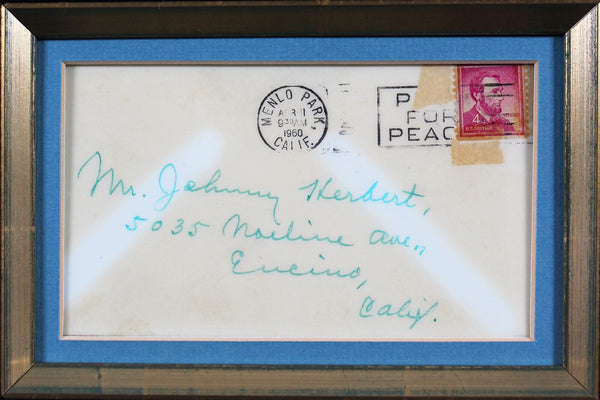 MENLO PARK,
9 30 AM
1960
CALIF.
P
FOR
PEAC
4¢
U.S. POSTAGE
Mr. Johnny Herbert,
5035 Noeline Ave.,
Encino,
Calif.